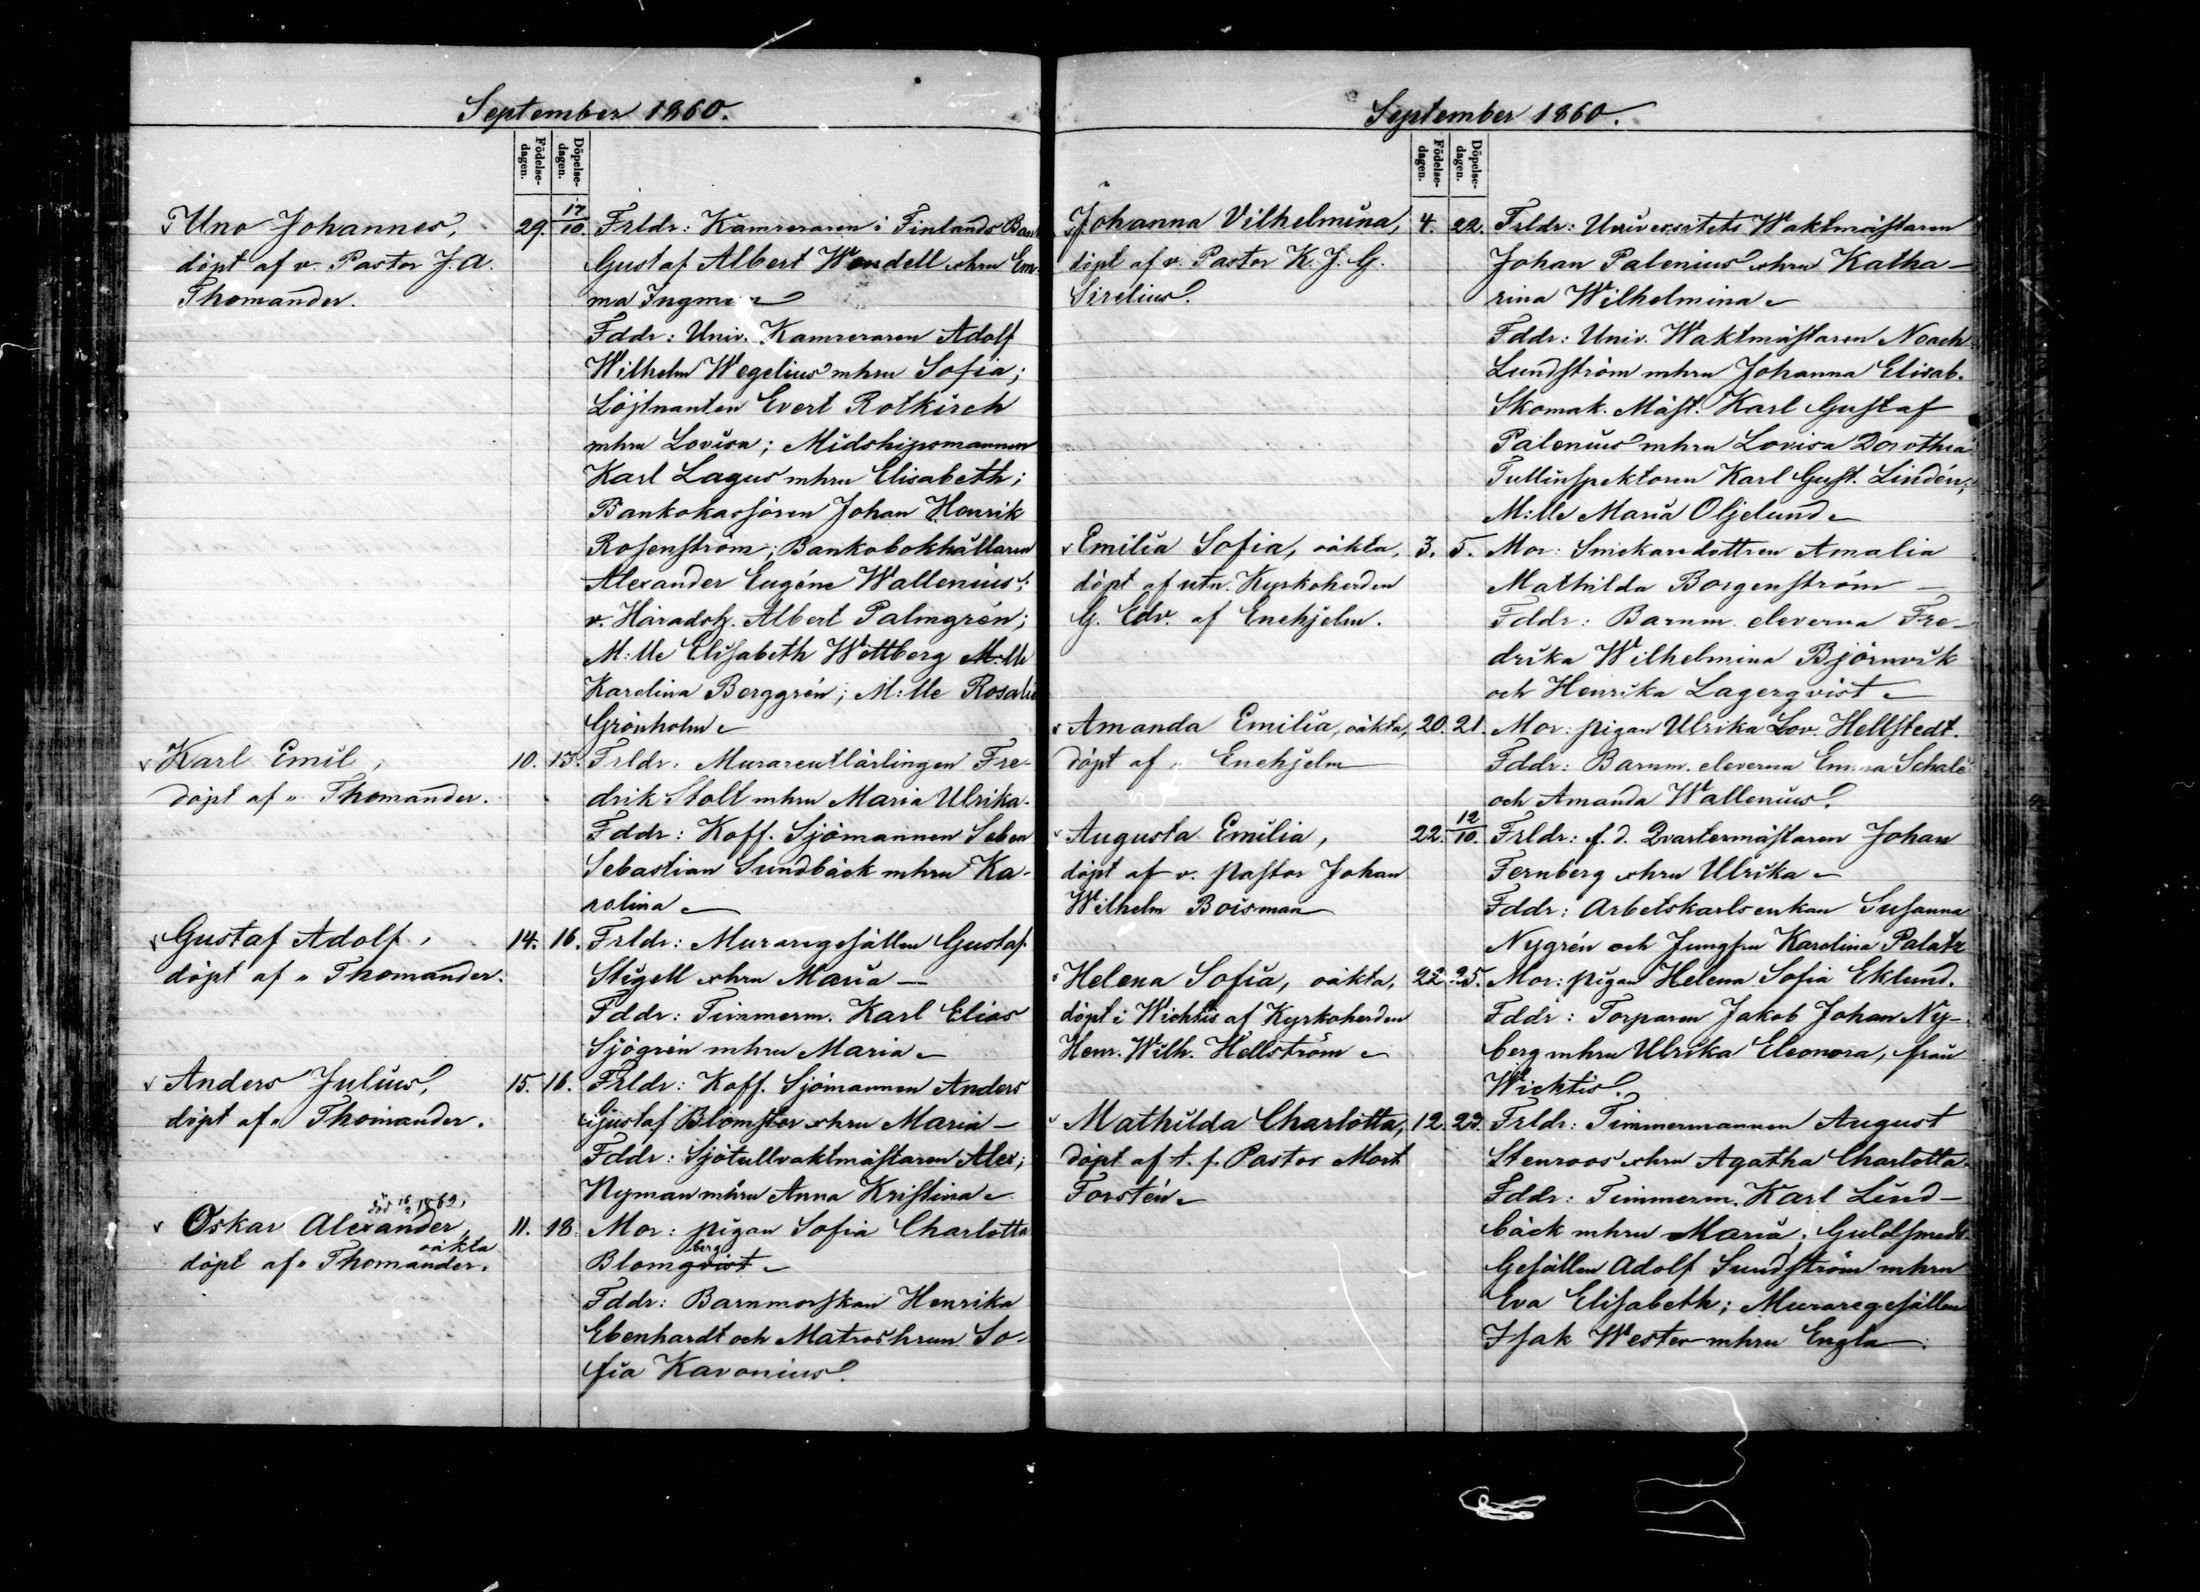 September 1860.
Födelse-dagen. Döpelse-dagen.
Uno Johannes, 29. 17/10. Frldr: Kamreraren i Finlands Bank
döpt af v. Pastor J. A. Gustaf Albert Wendell o hru Em-
Thomander. ma Ingman
Fddr: Univ. Kamreraren Adolf
Wilhelm Wegelius m hru Sofia;
Löjtnanten Evert Rotkirch
m hru Lovisa; Midshipsmannen
Karl Lagus m hru Elisabeth;
Bankokassören Johan Henrik
Rosenström; Bankobokhållaren
Alexander Eugéne Wallenius;
v. Häradsh. Albert Palmgrén;
M:lle Elisabeth Wettberg M:lle
Karolina Berggrén; M:lle Rosalie
Grönholm
Karl Emil, 10. 13. Frldr: Murareutlärlingen Fre-
döpt af " Thomander. drik Stolt m hru Maria Ulrika.
Fddr: Koff. Sjömannen Seben
Sebastian Sundbäck m hru Ka-
rolina
Gustaf Adolf, 14. 16. Frldr: Muraregesällen Gustaf
döpt af " Thomander. Stigell o hru Maria —
Fddr: Timmerm. Karl Elias
Sjögrén m hru Maria
Anders Julius, 15. 16. Frldr: Koff. Sjömannen Anders
döpt af " Thomander. Gustaf Blomster o hru Maria —
Fddr: Sjötullvaktmästaren Alex;
Nyman m hru Anna Kristina
död 16/2 1862,
Oskar Alexander, 11. 18. Mor: pigan Sofia Charlotta
oäkta berg
döpt af " Thomander. Blomqvist
Fddr: Barnmorskan Henrika
Ebenhardt och Matroshrun So-
fia Kavonius.
September 1860.
Födelse-dagen. Döpelse-dagen.
Johanna Vilhelmina, 4. 22. Frldr: Universitets Waktmästaren
döpt af v. Pastor K. J. G. Johan Palenius o hru Katha-
Sirelius. rina Wilhelmina
Fddr: Univ. Waktmästaren Noach
Lundström m hru Johanna Elisab.
Skomak. Mäst. Karl Gustaf
Palenius m hru Lovisa Dorothea
Tullinspektoren Karl Gust. Lindén;
M:lle Maria Oljelund
Emilia Sofia, oäkta, 3. 5. Mor: Smickaredottren Amalia
döpt af utn. Kyrkoherden Mathilda Borgenström —
G. Edv. af Enehjelm. Fddr: Barnm. eleverna Fre-
drika Wilhelmina Björnvik
och Henrika Lagerqvist
Amanda Emilia, oäkta, 20. 21. Mor: pigan Ulrika Lov. Hellstedt.
döpt af " Enehjelm Fddr: Barnm. eleverna Emma Schale
och Amanda Wallenius.
Augusta Emilia, 22. 12/10. Frldr: f. d. Qvartermästaren Johan
döpt af v. Pastor Johan Fernberg o hru Ulrika
Wilhelm Boisman Fddr: Arbetskarlsenkan Susanna
Nygrén och Jungfru Karolina Palatz
Helena Sofia, oäkta, 22. 25. Mor: pigan Helena Sofia Eklund.
döpt i Wichtis af Kyrkoherden Fddr: Torparen Jakob Johan Ny-
Henr. Wilh. Hellström berg m hru Ulrika Eleonora, från
Wichtis.
Mathilda Charlotta, 12. 23. Frldr: Timmermannen August
döpt af t. f. Pastor Mort Stenroos o hru Agatha Charlotta.
Forstén Fddr: Timmerm. Karl Lind-
bäck m hru Maria; Guldsmeds
Gesällen Adolf Sundström m hru
Eva Elisabeth; Muraregesällen
Isak Wester m hru Engla.